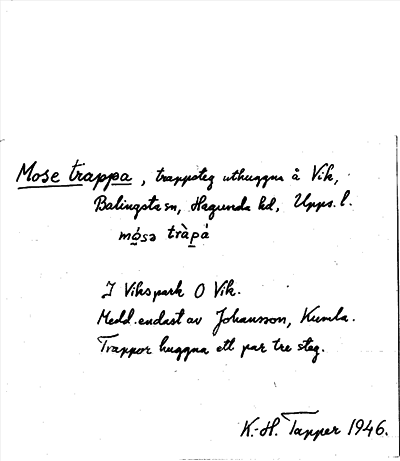 Mose trappa, trappsteg uthuggna å Vik,
Balingsta sn, Hagunda hd, Upps. l.
mósə tràpá
I Vikspark O Vik.
Medd. endast av Johansson, Kumla.
Trappor huggna ett par tre steg.
K.-H. Tapper 1946.